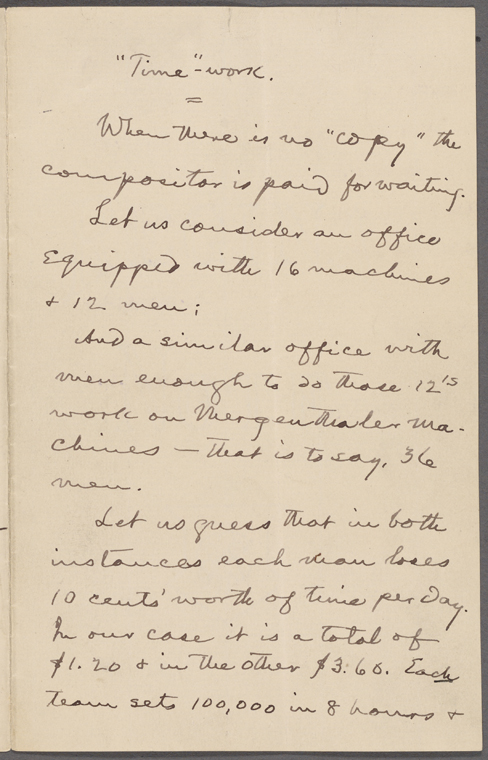 "Time"-work.
=
When there is no "copy" the
compositor is paid for waiting.
Let us consider an office
equipped with 16 machines
& 12 men;
And a similar office with
men enough to do those 12's
work on Mergenthaler ma-
chines — that is to say, 36
men.
Let us guess that in both
instances each man loses
10 cents' worth of time per day.
In our case it is a total of
$1.20 & in the other $3.60. Each
team sets 100,000 in 8 hours &